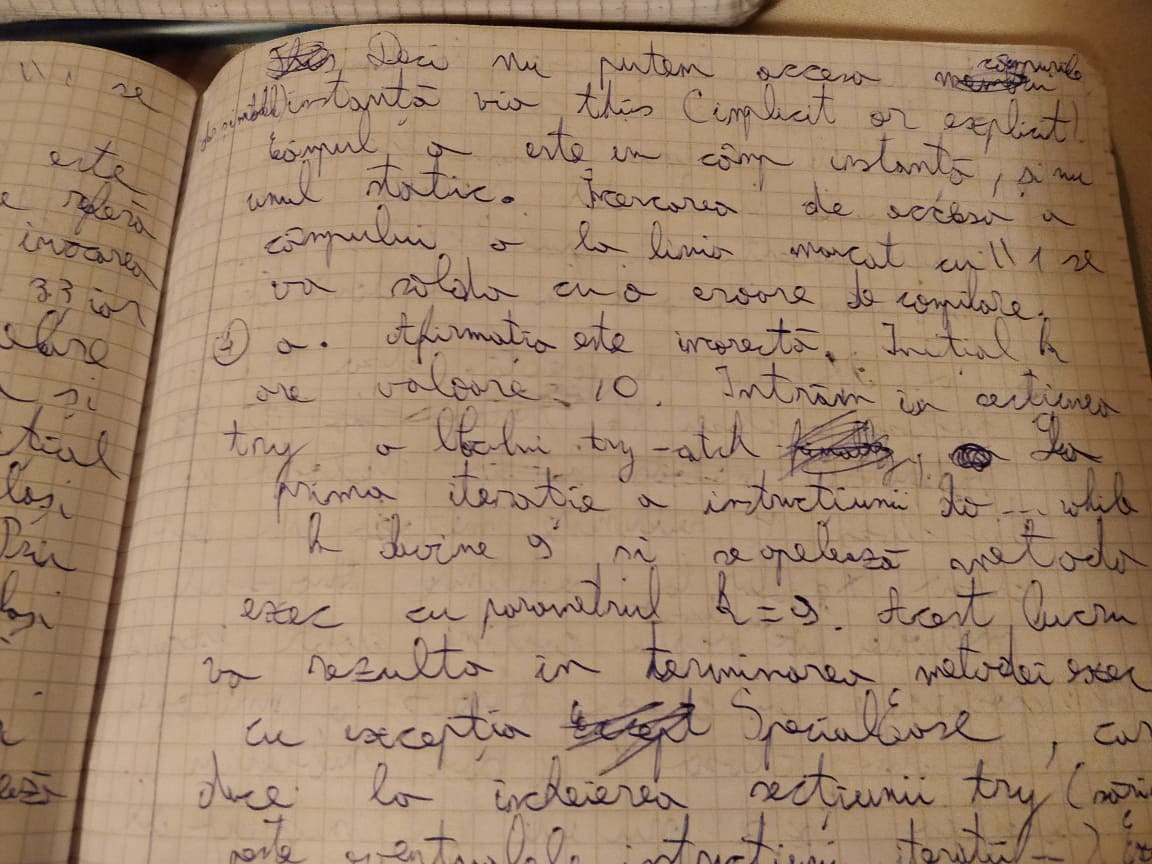 \\ 1 se
este
e referă
invocarea
33 iar
și
Deci nu putem accesa câmpurile
instanță via this (implicit or explicit).
Câmpul a este un câmp instanță, și nu
unul static. Încercarea de accesa a
câmpului a la linia marcat cu \\ 1 se
va solda cu o eroare de compilare.
4 a. Afirmația este incorectă. Inițial k
are valoare 10. Intrăm in secțiunea
try a blocului try-catch La
prima iterație a instrucțiunii do ... while
k devine 9 si se apelează metoda
exec cu parametrul k = 9. Acest lucru
va rezulta in terminarea metodei exec
cu excepția , car
duce la incheierea secțiunii try (sări
peste eventualele instrucțiuni